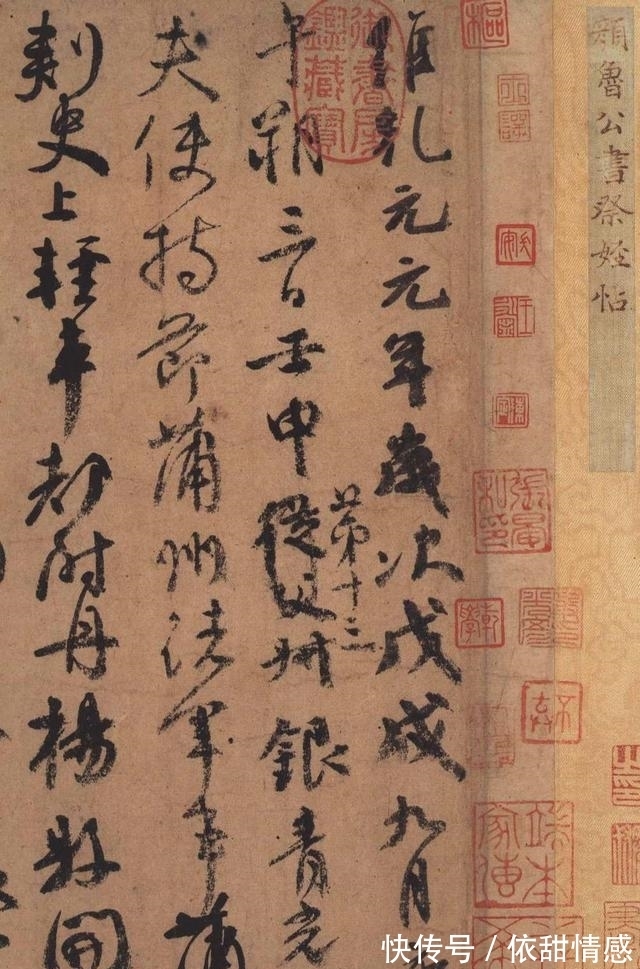 顏魯公書祭姪帖
維乾元元年歲次戊戌九月庚
午朔三日壬申第十三從父叔銀青光
夫使持節蒲州諸軍事蒲
刺史上輕車都尉丹楊縣開
御書房鑑藏寶
快传号／依甜情感